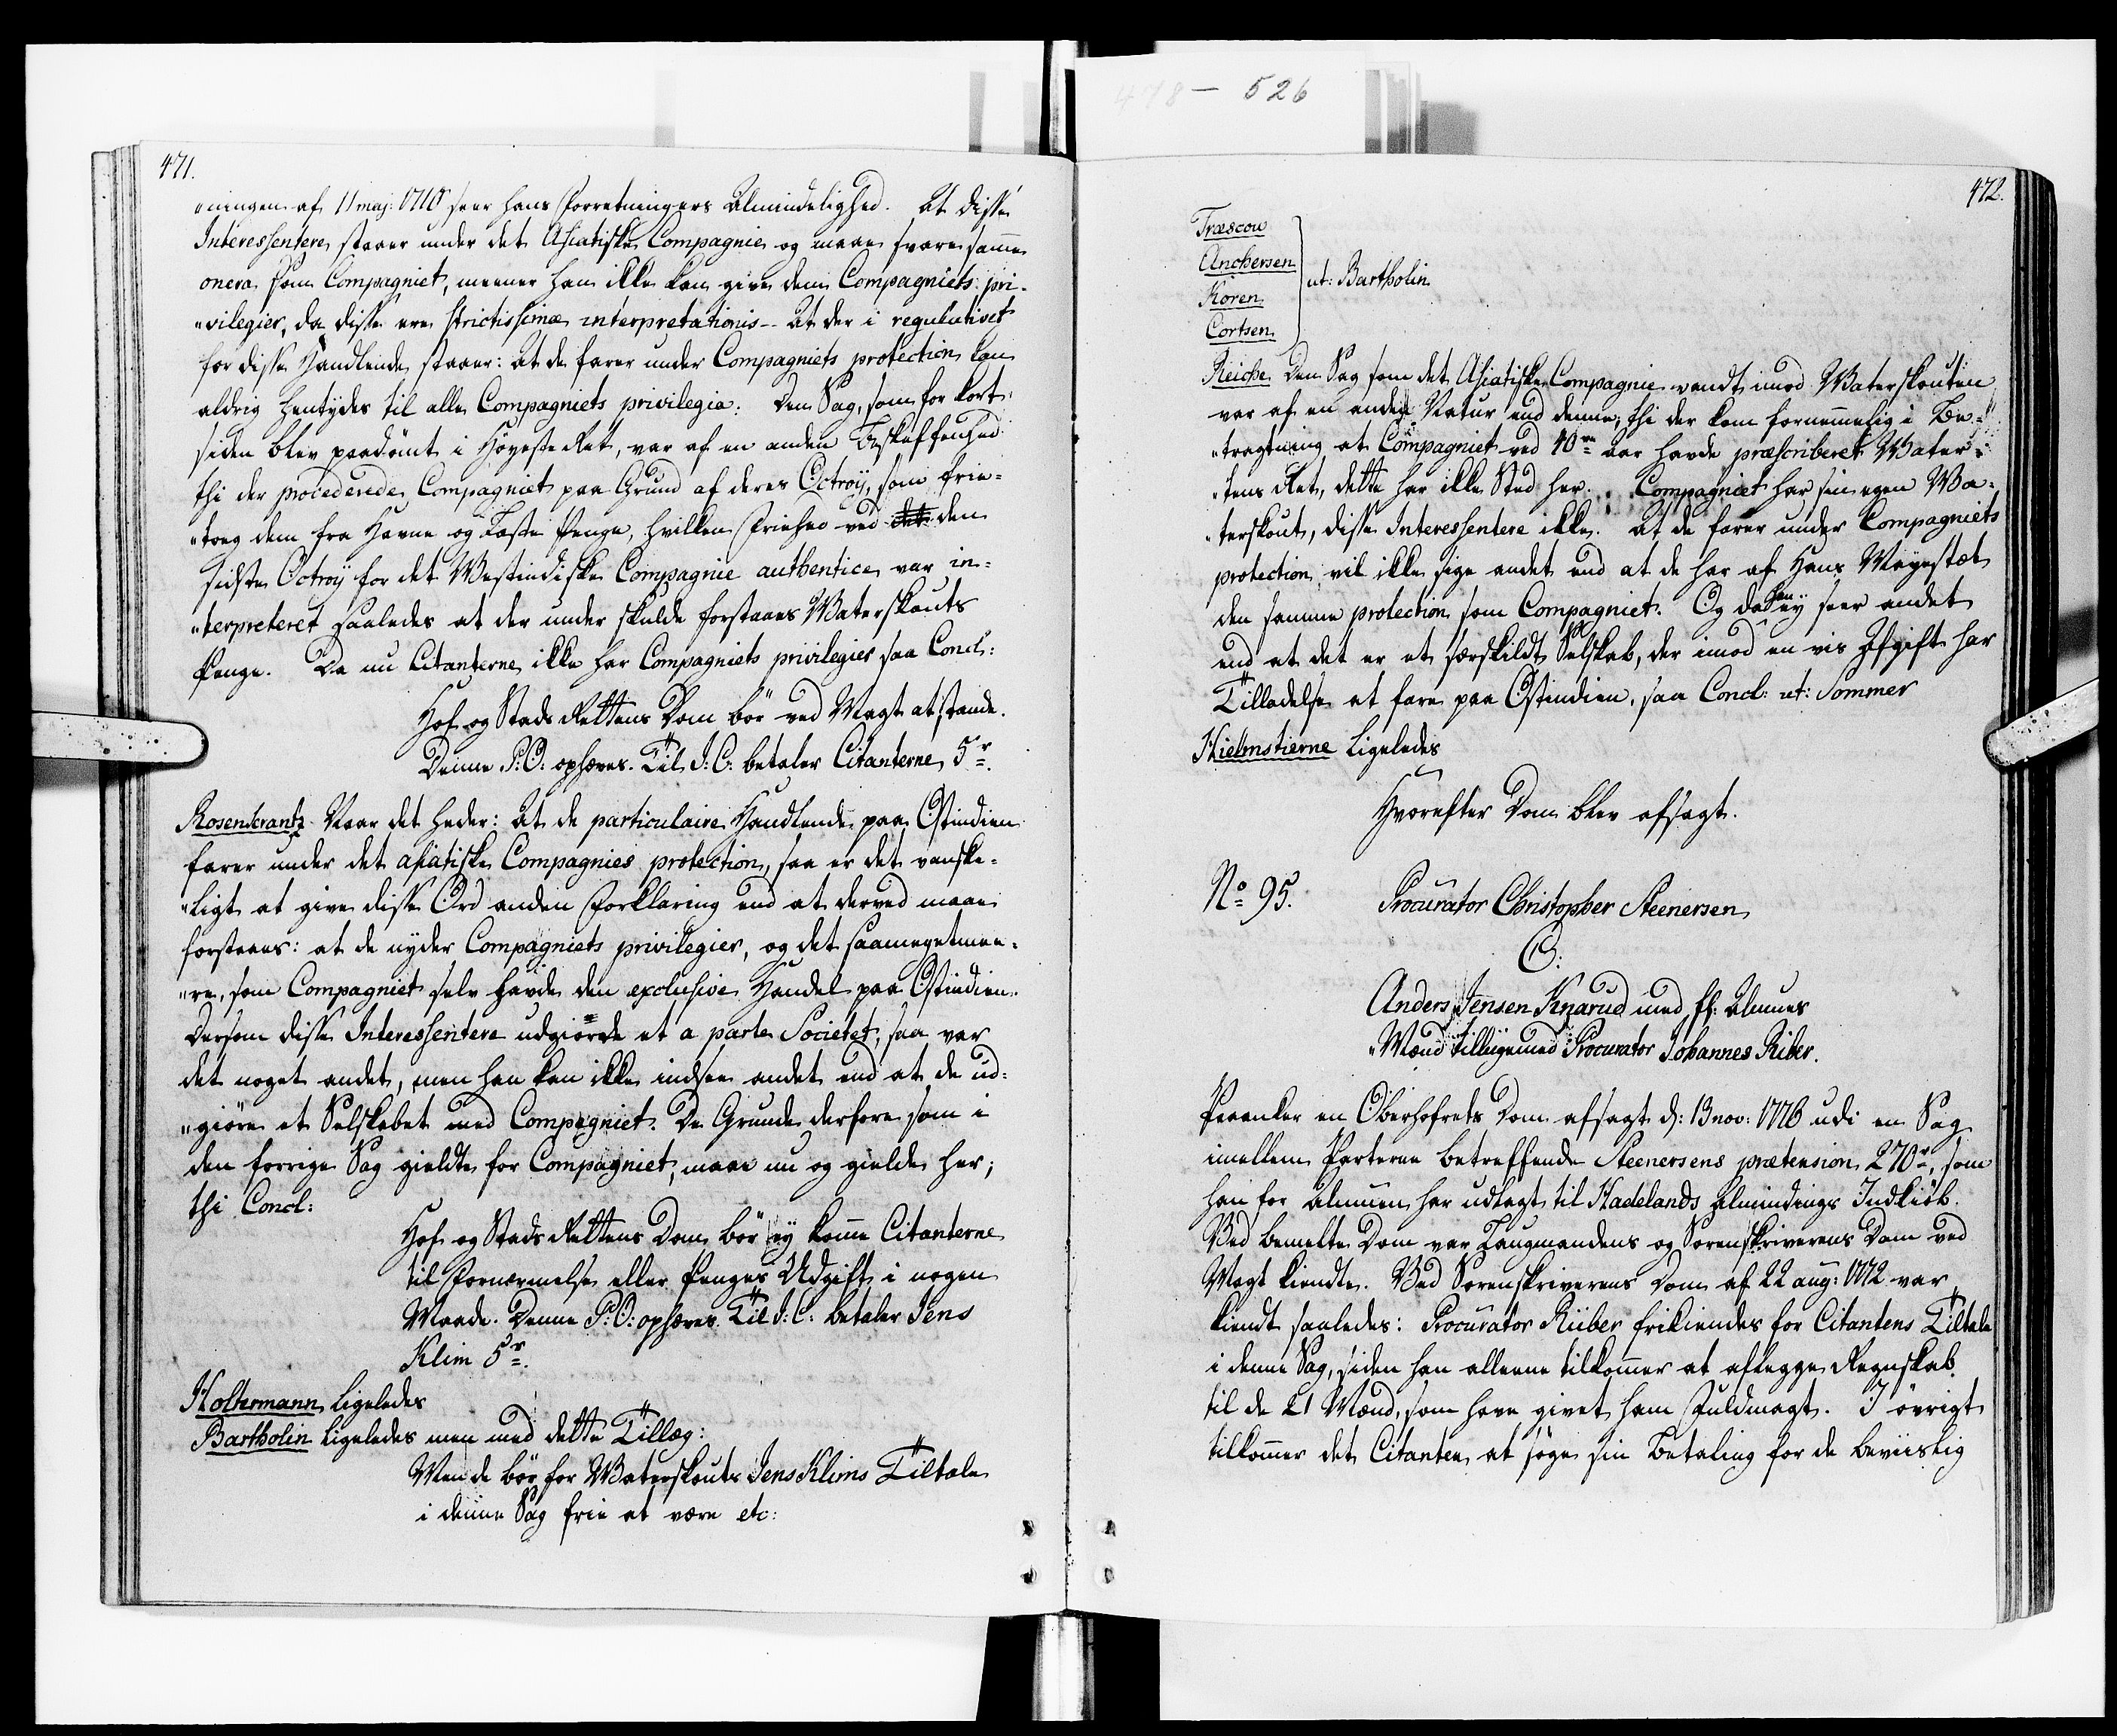 478 - 526
471.
"ningen af 11 maj: 1718 seer hans Forretningers Almindelighed. At disse
Interessentere staaer under det Asiatiske Compagnie og maae svare samme
onera som Compagniet, meener han ikke kan give dem Compagniets pri-
"vilegier, da disse ere strictissimæ interpretationis - At der i regulativet
for disse Handlende staaer: at de farer under Compagniets protection kan
aldrig hentydes til alle Compagniets privilegia. Den Sag, som for kort
siden blev paadömt i Höyeste Ret, var af en anden Beskaffenhed
thi der procederede Compagniet paa Grund af deres Octroij, som frie-
"tog dem fra Havne og Faste Penge, hvilken Friehed ved den
sidste Octroij for det Westindiske Compagnie authentice var in-
"terpreteret saaledes at der under skulde forstaaes Waterskouts
Penge. Da nu Citanterne ikke har Compagniets privilegier saa Concl:
Hof og Stads Rettens Dom bör ved Magt at stande.
Denne P: O: ophæves. Til J: C: betaler Citanterne 5 r.
Rosenkrantz Naar det heder: At de particulaire Handlende paa Ostindien
farer under det asiatiske Compagnies protection, saa er det vanske-
"ligt at give disse Ord anden Forklaring end at derved maae
forstaaes: at de nyder Compagniets privilegier, og det saameget mee-
"re, som Compagniet selv havde den exclusive Handel paa Ostindien.
Dersom disse Interessentere udgiorde et a parte Societet, saa var
det noget andet, men han kan ikke indsee andet end at de ud-
"giöre et Selskabet med Compagniet. De Grunde derfore som i
den forrige Sag gieldte for Compagniet, maae nu og gielde her;
thi Concl:
Hof og Stads Rettens Dom bör ey komme Citanterne
til Fornærmelse eller Penges Udgift i nogen
Maade. Denne P: O: ophæves. Til J: C: betaler Jens
Klim 5 r.
Holtermann ligeledes
Bartholin ligeledes men med dette Tillæg:
Men de bör for Waterskouts Jens Klims Tiltale
i denne Sag frie at være etc:
472.
Træscow
Anchersen
Koren
Cortsen
ut: Bartholin
Reiche Den Sag som det Asiatiske Compagnie vandt imod Waterskouten
var af en anden Natur end denne, thi der kom fornemmelig i Be-
"tragtning at Compagniet ved 40re Aar havde præscriberet Water-
"tens Ret, dette har ikke Sted her. Compagniet har sin egen Wa-
"terskout, disse Interessentere ikke. At de farer under Compagniets
protection vil ikke sige andet end at de har af Hans Mayestæt
den samme protection som Compagniet. Og da han ey seer andet
end at det er et særskildt Selskab, der imod en vis Afgift har
Tilladelse at fare paa Ostindien, saa Concl: ut: Sommer
Hielmstierne ligeledes
Hvorefter Dom blev afsagt.
No 95. Procurator Christopher Steenersen
C:
Anders Jensen Knarud med fl: Almues
"Mænd tilligemed Procurator Johannes Riber.
Paaanker en Oberhofrets Dom afsagt d: 13 nov: 1776 udi en Sag
imellem Parterne betreffende Steenersens prætension 270 r, som
han for Almuen har udlagt til Hadelands Almindings Indkiöb.
Ved bemelte Dom var Laugmandens og Sorenskriverens Dom ved
Magt kiendte. Ved Sorenskriverens Dom af 22 aug: 1772 var
kiendt saaledes: Procurator Riiber frikiendes for Citantens Tiltale
i denne Sag, siden han alleene tilkommer at aflegge Regnskab
til de 21 Mænd, som have givet ham Fuldmagt. I övrigt
tilkommer det Citanten at söge sin Betaling for de beviislig